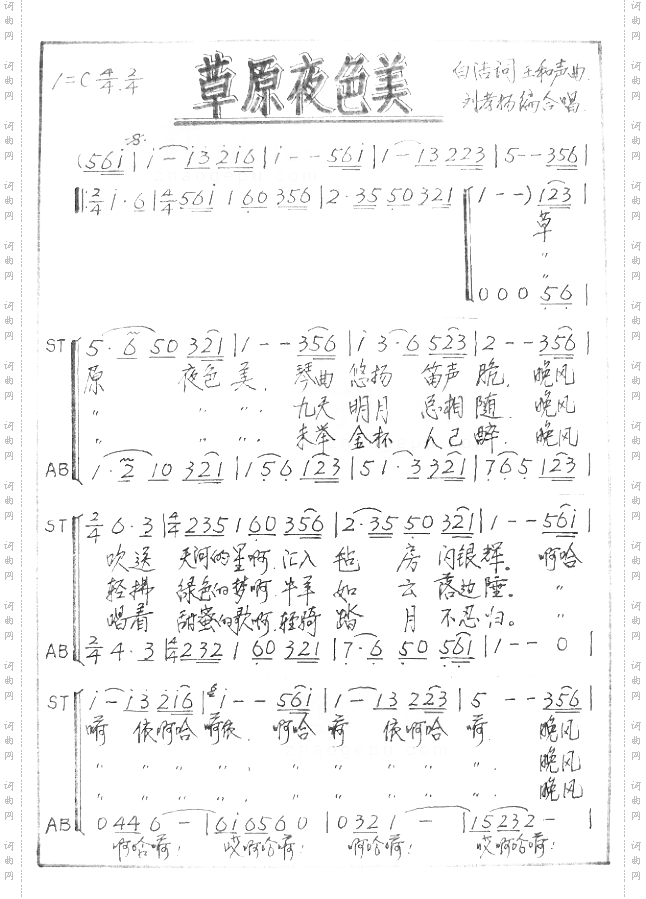 草原夜色美
1=C 4/4 2/4
白洁词 王和声曲
刘孝扬编合唱
(56i | i - i3 2i6 | i - - 56i | i - i3 223 | 5 - - 356 |
2/4 i · 6 | 4/4 56i 1 60 356 | 2 · 35 50 321 | 1 - - ) 123 |
草
"
"
0 0 0 56 |
ST 5 · 6 50 321 | 1 - - 356 | i 3 · 6 523 | 2 - - 356 |
原 夜色 美, 琴曲 悠扬 笛声 脆, 晚风
" " " " . 九天 明月 总相 随. 晚风
" " " " . 未举 金杯 人已 醉. 晚风
AB 1 · 2 10 321 | 1 5 6 123 | 5 1 · 3 321 | 7 6 5 123 |
ST 2/4 6 · 3 | 4/4 235 1 60 356 | 2 · 35 50 321 | 1 - - 56i |
吹送 天河的星啊, 汇入 毡 房 闪银辉。 啊哈
轻拂 绿色的梦啊, 牛羊 如 云 落边陲。 "
唱着 甜蜜的歌啊, 轻骑 踏 月 不忍归。 "
AB 2/4 4 · 3 | 4/4 232 1 60 321 | 7 · 6 50 561 | 1 - - 0 |
ST i - i3 2i6 | i - - 56i | 1 - 13 223 | 5 - - 356 |
嗬 依啊哈 嗬依, 啊哈 嗬 依啊哈 嗬. 晚风
" " " " " . " " " " " . 晚风
" " " " " . " " " " " . 晚风
AB 0 44 6 - | 6i 656 0 | 0 32 1 - | 15 232 - |
啊哈嗬! 哎啊哈嗬! 啊哈嗬! 哎啊哈嗬!
词曲网